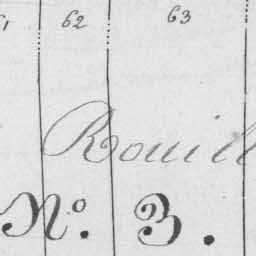 61 62 63
Rouill
No. 3.